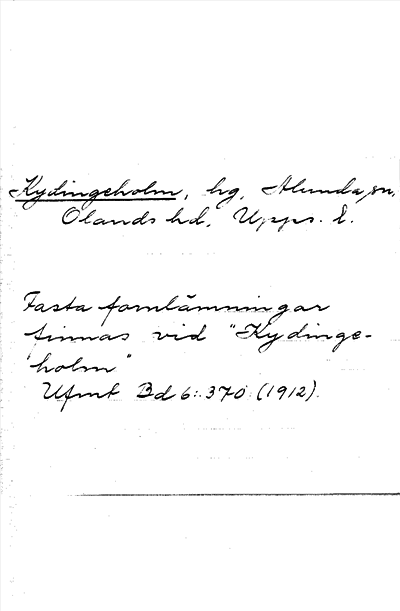 Kydingeholm, hg, Alunda sn,
Olands hd, Upps. l.
Fasta fornlämningar
finnas vid "Kydinge-
holm"
Ufmt Bd 6: 370 (1912).